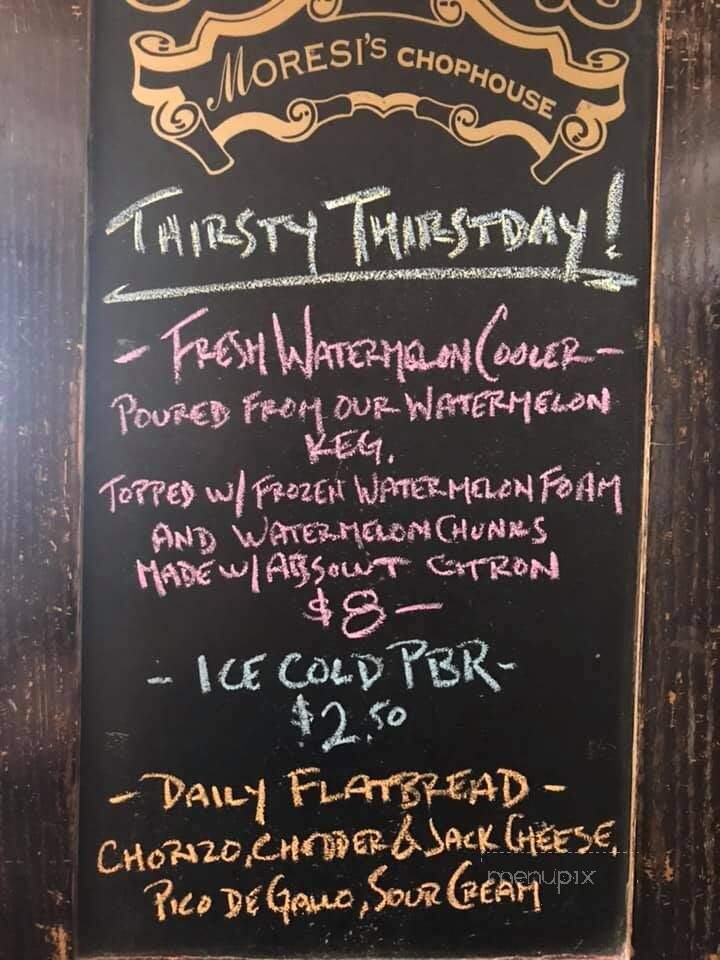 MORESI'S CHOPHOUSE
THIRSTY THIRSTDAY!
- FRESH WATERMELON COOLER -
POURED FROM OUR WATERMELON
KEG.
TOPPED W/ FROZEN WATERMELON FOAM
AND WATERMELON CHUNKS
MADE W/ ABSOLUT CITRON
$8-
- ICE COLD PBR -
$2.50
- DAILY FLATBREAD -
CHORIZO, CHEDDER & JACK CHEESE,
PICO DE GALLO, SOUR CREAM
menupix